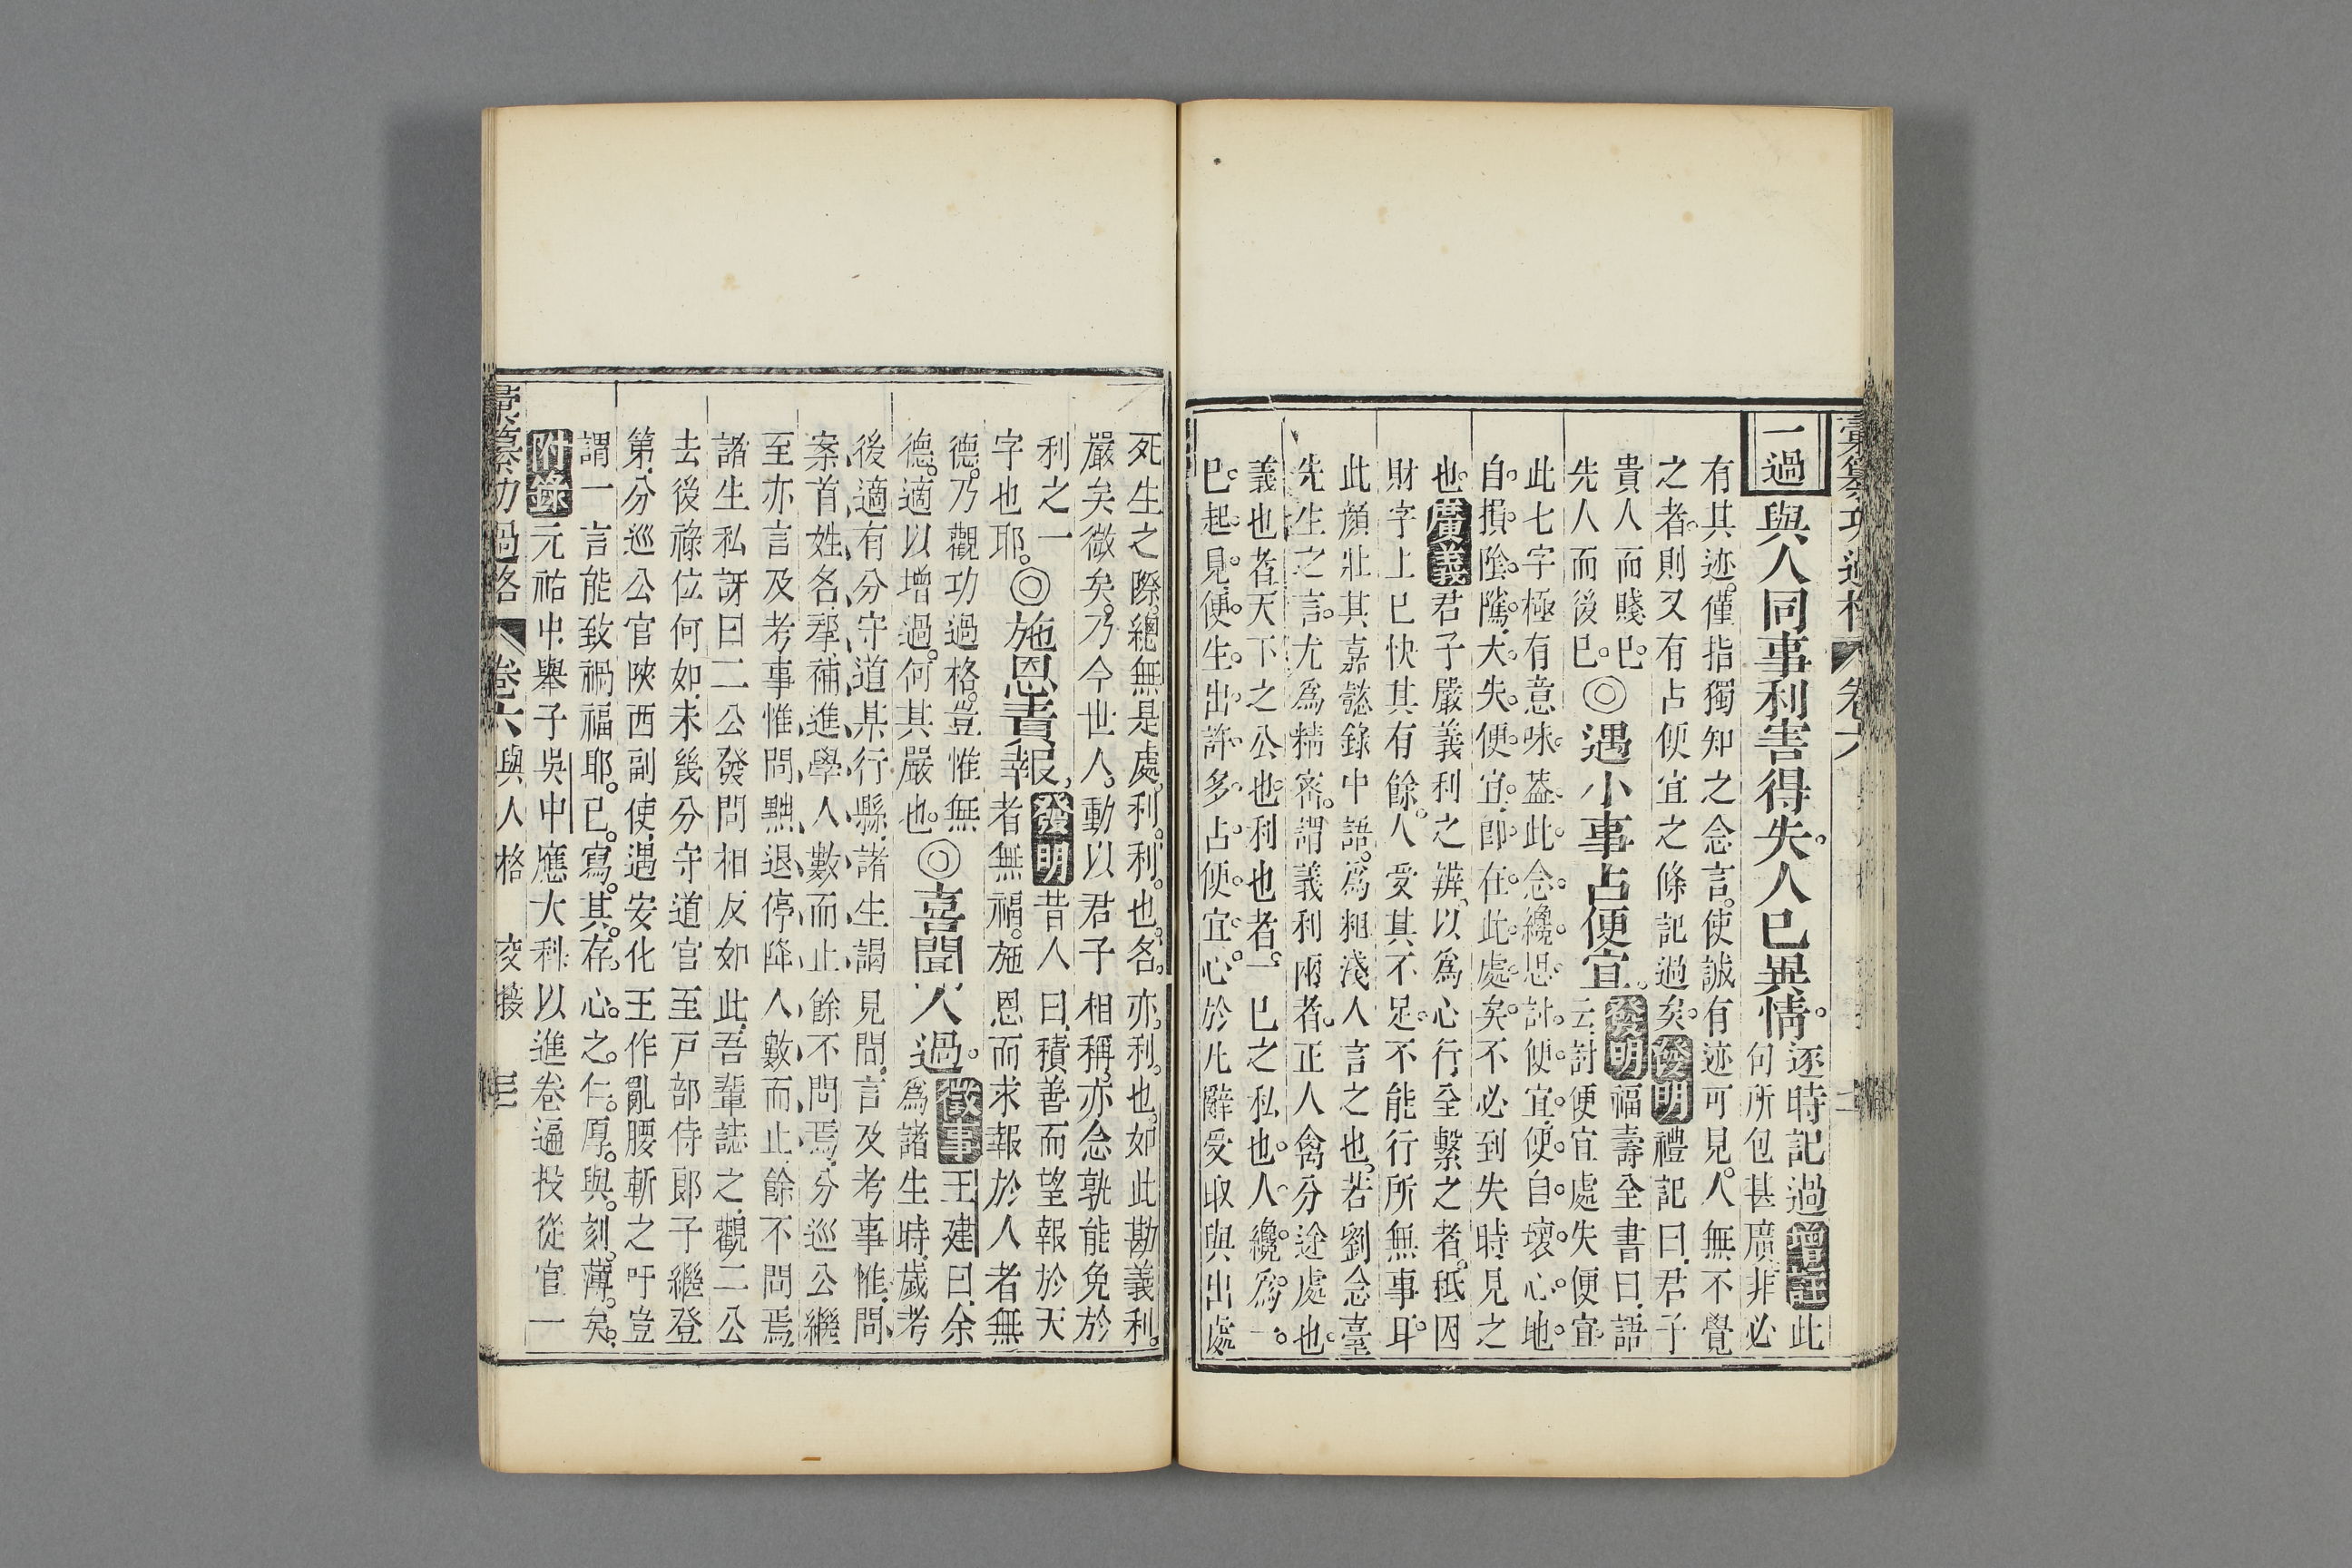 彙纂功過格　卷六
一過　與人同事利害得失。人已異情。逐時記過　增註　此
何所包甚廣。非必
有其迹。僅指獨知之念言。使誠有迹可見。人無不覺
之者。則又有占便宜之條記過矣。發明　禮記曰。君子
貴人而賤已。
先人而後已。◎遇小事占便宜。發明　福壽全書曰。語
云。討便宜處失便宜
此七字極有意味。葢此念纔思計便宜。便自壞心地。
自損陰隲。大失便宜。卽在此處矣。不必到失時。見之
也。廣義　君子嚴義利之辨。以爲心行全繫之者。秪因
財字上已快其有餘。人受其不足。不能行所無事耳。
此顏壯其嘉懿錄中語。爲粗淺人言之也。若劉念臺
先生之言。尤爲精密。謂義利兩者。正人禽分途處也。
義也者。天下之公也。利也者。一已之私也。人纔爲一。
已起見。便生出許多占便宜心。於凡辭受取與出處
死生之際。總無是處。利。利也。名。亦利也。如此勘義利。
嚴矣微矣。乃今世人。動以君子相稱。亦念孰能免於
利之一
字也耶。◎施恩責報。發明　昔人曰。積善而望報於天
者無福。施恩而求報於人者無
德。乃觀功過格。豈惟無
德。適以增過。何其嚴也。◎喜聞人過。徵事　王建曰。余
爲諸生時。歲考
後適有分守道某行縣。諸生謁見問。言及考事。惟問
案首姓名。幇補進學人數而止。餘不問焉。分巡公繼
至亦言及考事。惟問黜退停降人數而止。餘不問焉。
諸生私訝曰。二公發問相反如此。吾輩誌之。觀二公
去後祿位何如。未幾分守道官至戸部侍郎。子繼登
第。分巡公官陝西副使。遇安化王作亂腰斬之。吁豈
謂一言能致禍福耶。已。寫。其。存。心。之。仁。厚。與。刻。薄。矣。
附錄　元祐中。舉子吳中應大科。以進卷遍投從官一
彙纂功過格　卷六　與人格　交接　三